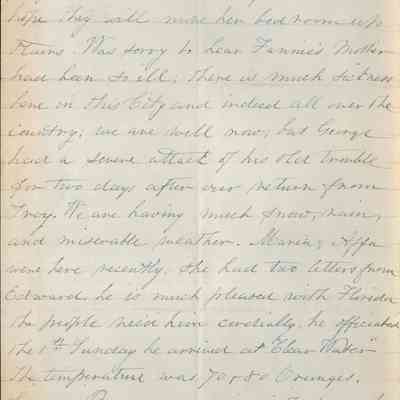 hope they will move her bed room up
stairs. Was sorry to hear Fannie's Mother
had been so ill; there is much sickness
here in this City and indeed all over the
country; we are well now; but George
had a severe attack of his old trouble
for two days after our return from
Troy. We are having much snow, rain,
and miserable weather. Maria &
were here recently, she had two letters from
Edward, he is much pleased with Florida
the people rec'd him cordially, he officiated
the 1st Sunday he arrived at "Clear Water"
the temperature was 70 & 80 Oranges.